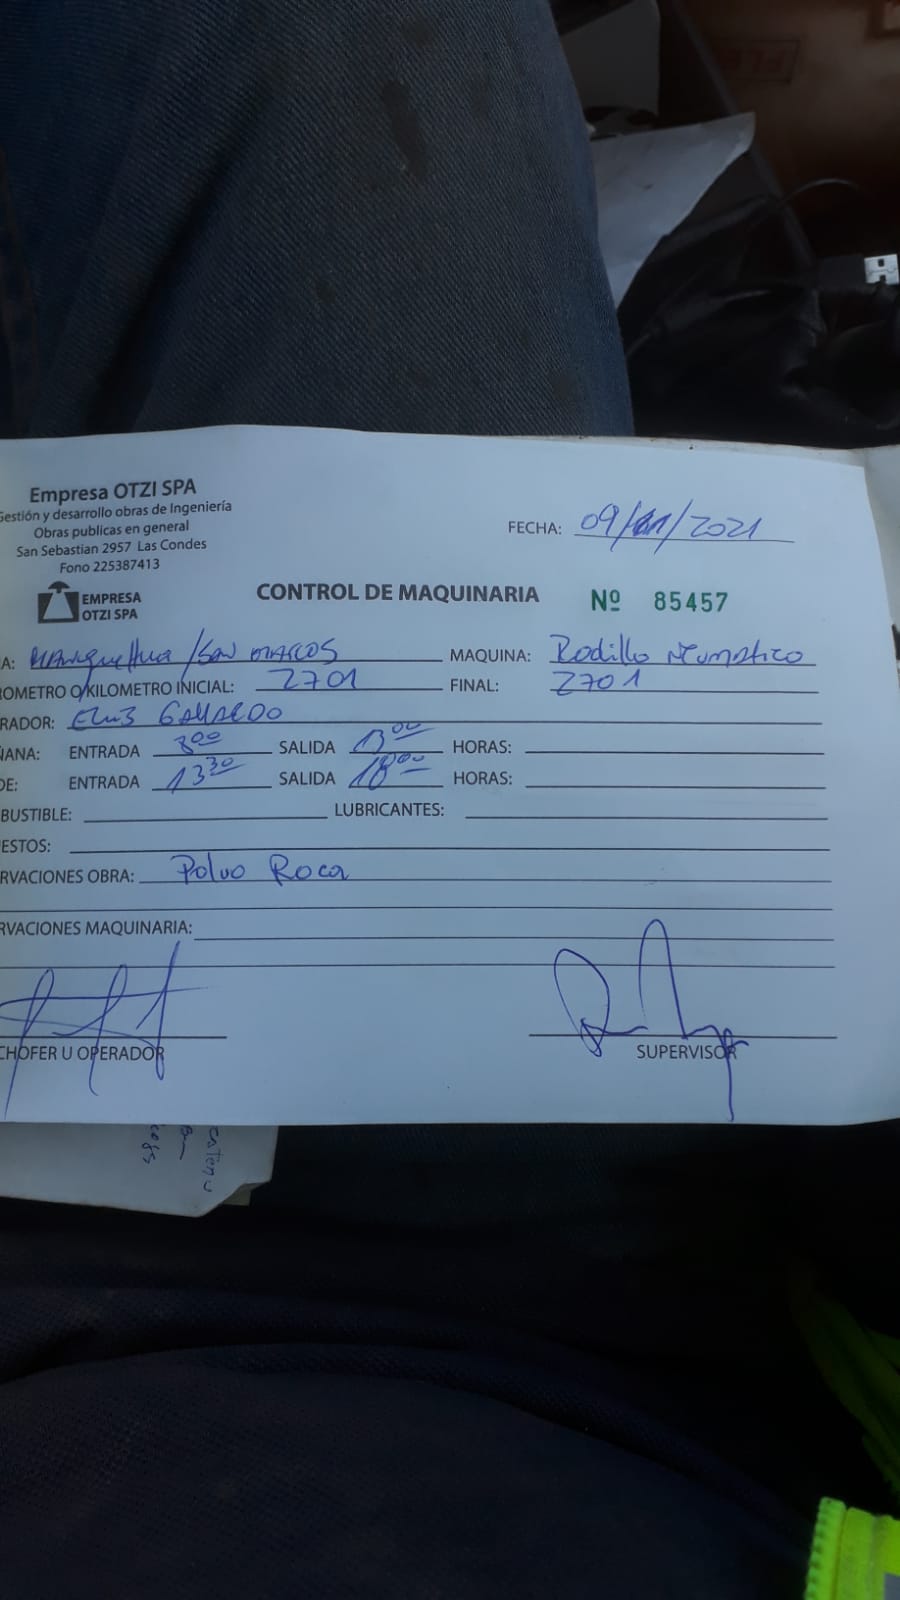 Empresa OTZI SPA
Gestión y desarrollo obras de Ingeniería
Obras publicas en general
San Sebastian 2957 Las Condes
Fono 225387413
EMPRESA
OTZI SPA
FECHA: 09/01/2021
CONTROL DE MAQUINARIA Nº 85457
A: /San MARCOS MAQUINA: Rodillo Neumatico
ROMETRO O/KILOMETRO INICIAL: 2701 FINAL: 2701
RADOR: GALLARDO
ÑANA: ENTRADA 8:00 SALIDA 13:00 HORAS:
DE: ENTRADA 13:30 SALIDA 18:00 HORAS:
BUSTIBLE: LUBRICANTES:
ESTOS:
RVACIONES OBRA: Polvo Roca
RVACIONES MAQUINARIA:
CHOFER U OPERADOR SUPERVISOR